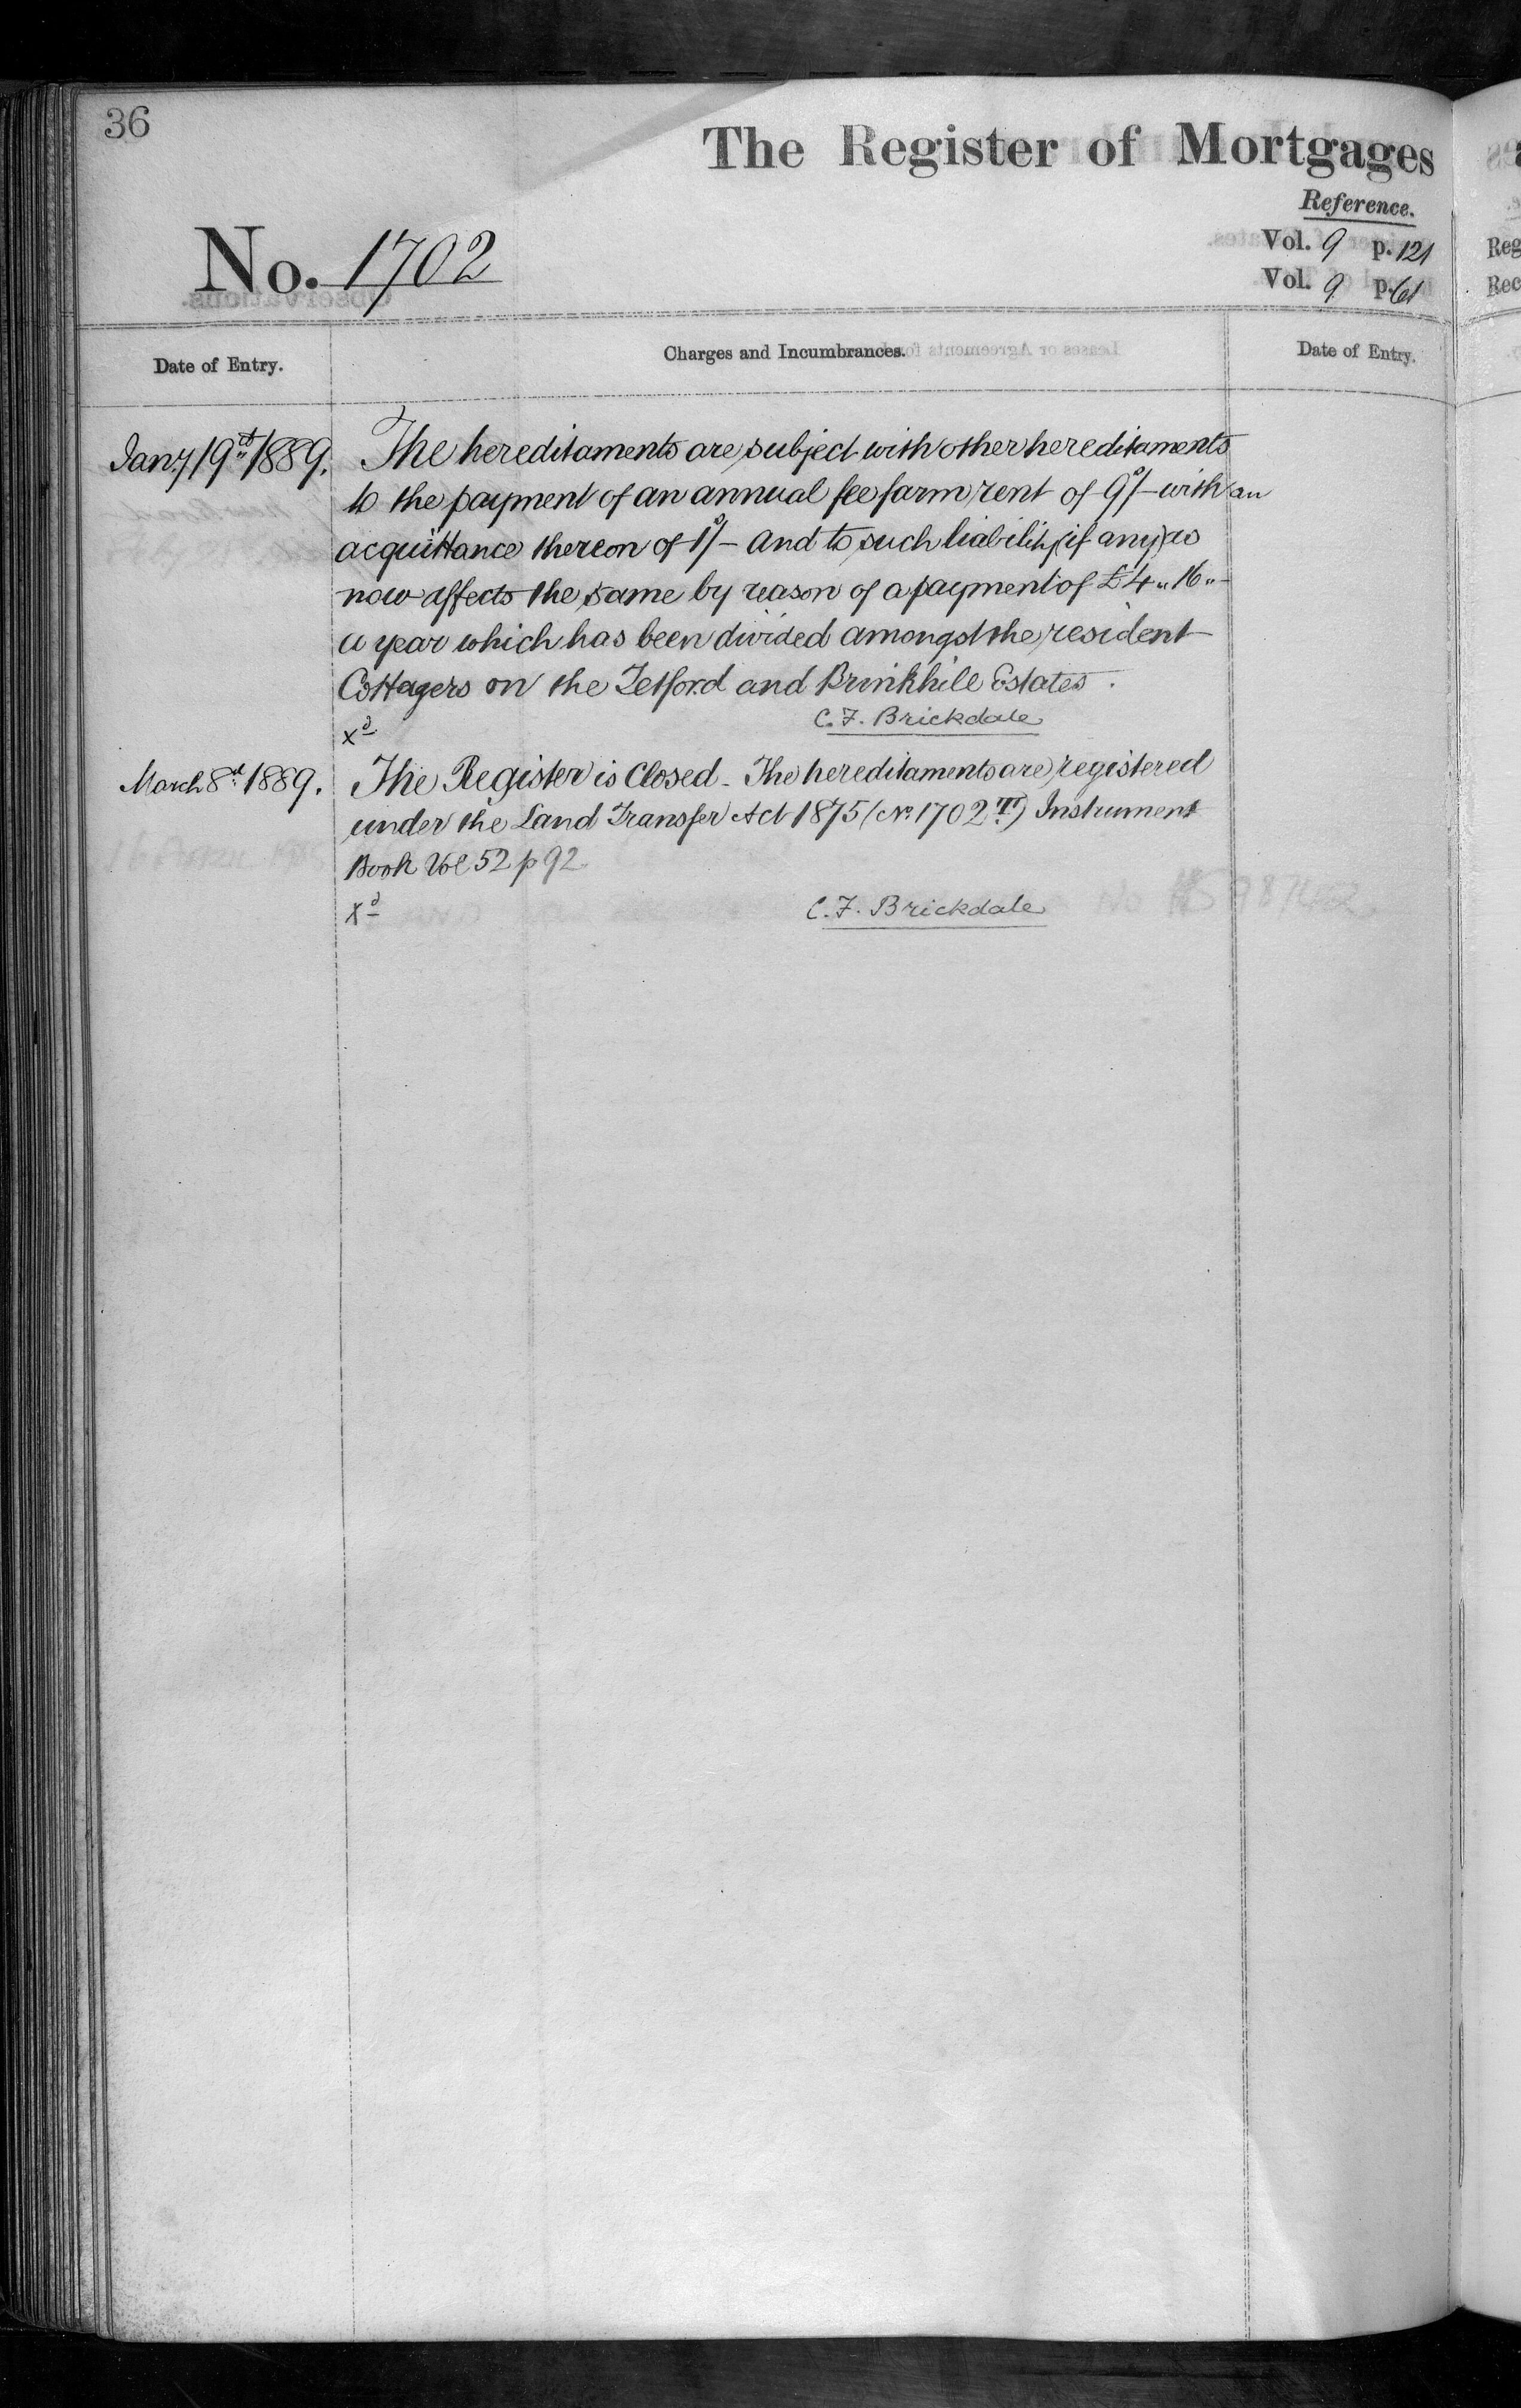 36
The Register of Mortgages
Reference.
No. 1702
Vol. 9 p. 121
Vol. 9 p. 61
Date of Entry.
Charges and Incumbrances.
Date of Entry.
Jany 19th 1889.
The hereditaments are subject with other hereditaments
to the payment of an annual fee farm rent of 9s/- with an
acquittance thereon of 1s/- and to such liability (if any) as
now affects the same by reason of a payment of £4 " 16 " -
a year which has been divided amongst the resident
Cottagers on the Tetford and Brinkhill Estates.
xd
C. F. Brickdale
March 8th 1889.
The Register is Closed - The hereditaments are registered
under the Land Transfer Act 1875 (No 1702 TT) Instrument
Book Vol 52 p 92
xd
C. F. Brickdale
Reg
Rec